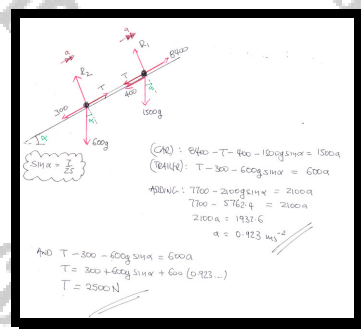 a
a
R₁
8400
R₂
T
T
400
α
1500g
300
α
α
600g
sinα = 7/25
(CAR): 8400 - T - 400 - 1500g sinα = 1500a
(TRAILER): T - 300 - 600g sinα = 600a
ADDING: 7700 - 2100g sinα = 2100a
7700 - 5762.4 = 2100a
2100a = 1937.6
a = 0.923 ms⁻²
AND T - 300 - 600g sinα = 600a
T = 300 + 600g sinα + 600 (0.923...)
T = 2500N